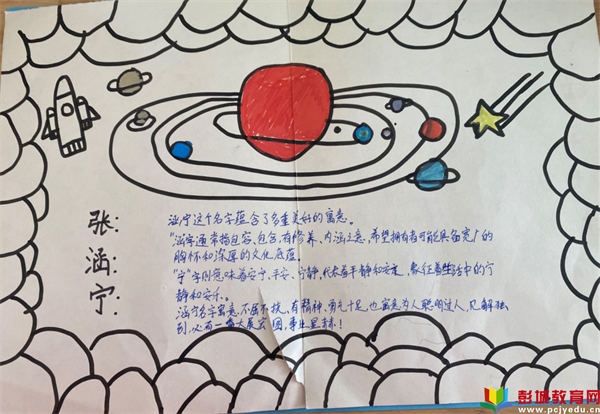 张:
涵:
宁:
涵宁这个名字蕴含了多重美好的寓意。
"涵"字通常指包容,包含,有修养、内涵之意,希望拥有者可能具备宽广的
胸怀和深厚的文化底蕴。
"宁"字则意味着安宁、平安、宁静,代表着平静和安定,象征着生活中的宁
静和安乐。
涵宁名字寓意,不屈不挠、有精神,勇气十足,也寓意为人聪明过人,见解独
到,必有一番大展宏图,事业呈祥!
彭城教育网
www.pcjyedu.cn